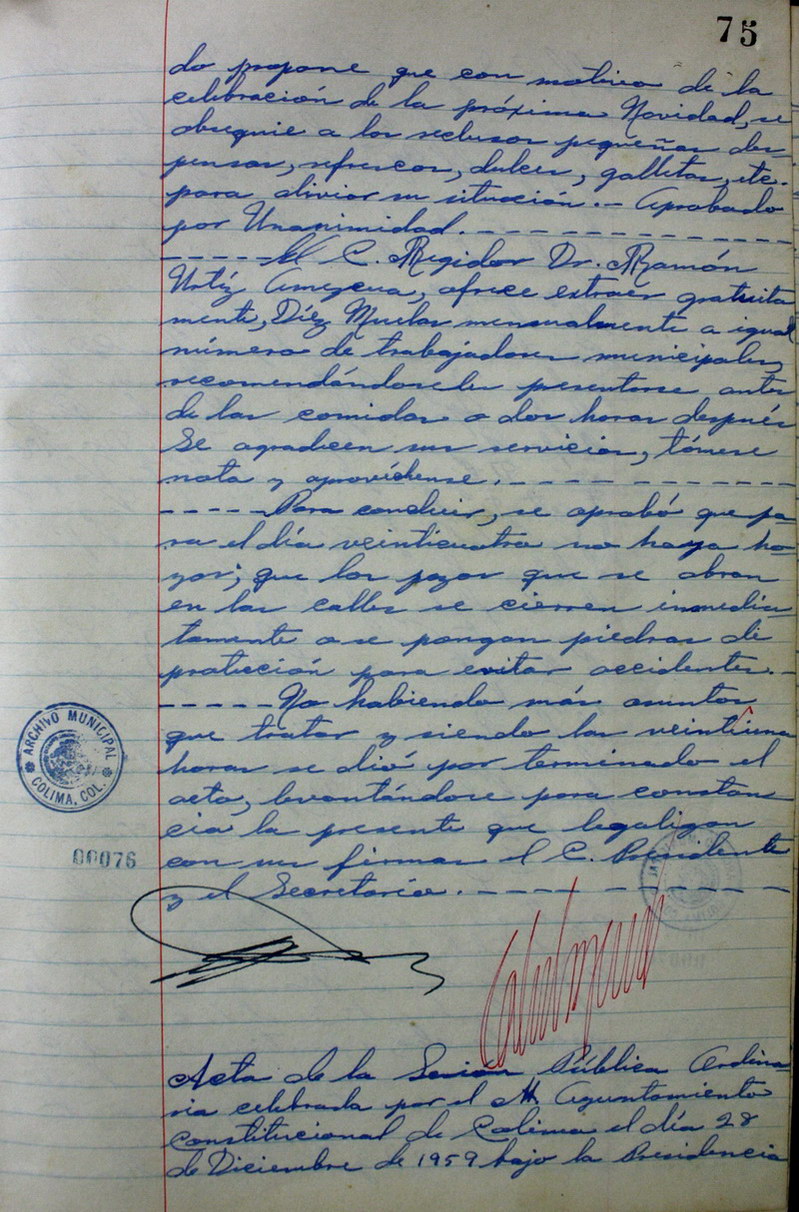 75
do propone que con motivo de la
celebración de la próxima Navidad, se
obsequie a los reclusos pequeñas des-
pensas, refrescos, dulces, galletas, etc.
para aliviar su situación.- Aprobado
por Unanimidad.- - - - - - - - - - -
- - - - -El C. Regidor Dr. Ramón
Urtíz Amezcua, ofrece extraer gratuita
mente, Díez Muelas mensualmente a igual
número de trabajadores municipales,
recomendándoseles presentarse antes
de las comidas o dos horas después
Se agradecen sus servicios, tómese
nota y aprovéchense.- - - - - - - - -
- - - - -Para concluir, se aprobó que pa-
ra el día veinticuatro no haya ho-
yos; que los pozos que se abran
en las calles se cierren inmedia-
tamente o se pongan piedras de
protección para evitar accidentes.-
- - - - -No habiendo más asuntos
que tratar y siendo las veintiuna
horas se dió por terminado el
acto, levantándose para constan
cia la presente que legalizan
con sus firmas el C. Presidente
y el Secretario.- - - - - - - - - - -
ARCHIVO MUNICIPAL
COLIMA, COL.
00076
Acta de la Sesión Pública Ordina
ria celebrada por el H. Ayuntamiento
Constitucional de Colima el día 28
de Diciembre de 1959 bajo la Presidencia